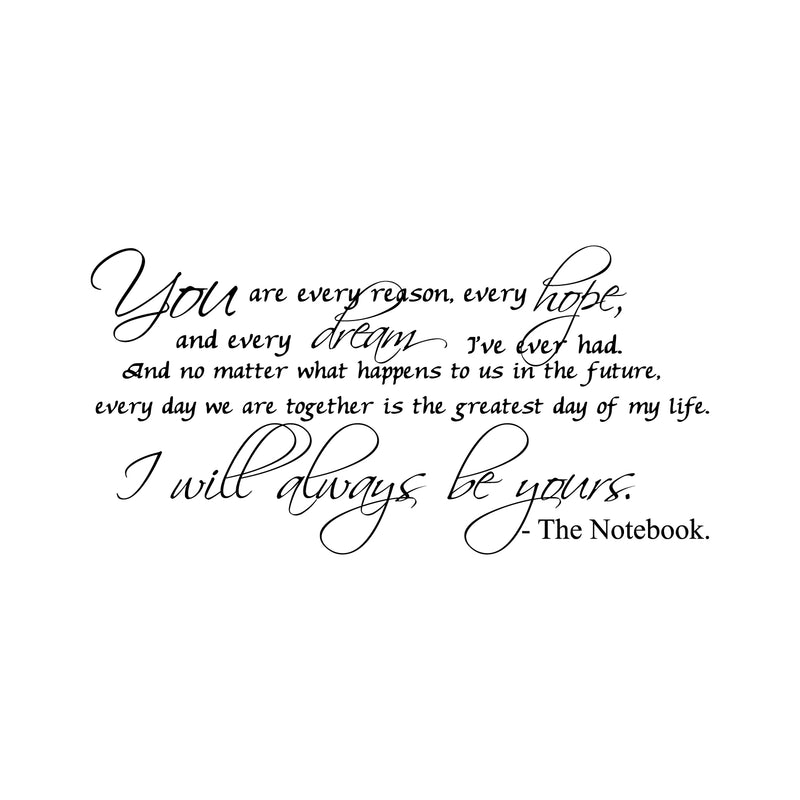 You are every reason, every hope,
and every dream I've ever had.
And no matter what happens to us in the future,
every day we are together is the greatest day of my life.
I will always be yours.
- The Notebook.